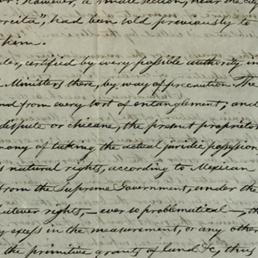 However, a small section, near the city
had been sold previously to
them.
certified by every possible authority, in
Ministers there, by way of precaution. The
from every sort of entanglement, and
dispute or chicane, the present proprietor
many of taking the actual juridic possession
natural rights, according to Mexican
from the Supreme Government, under the
rights, — ever so problematical —, th
excess in the measurement, or any other
the primitive grants of land &c, thus